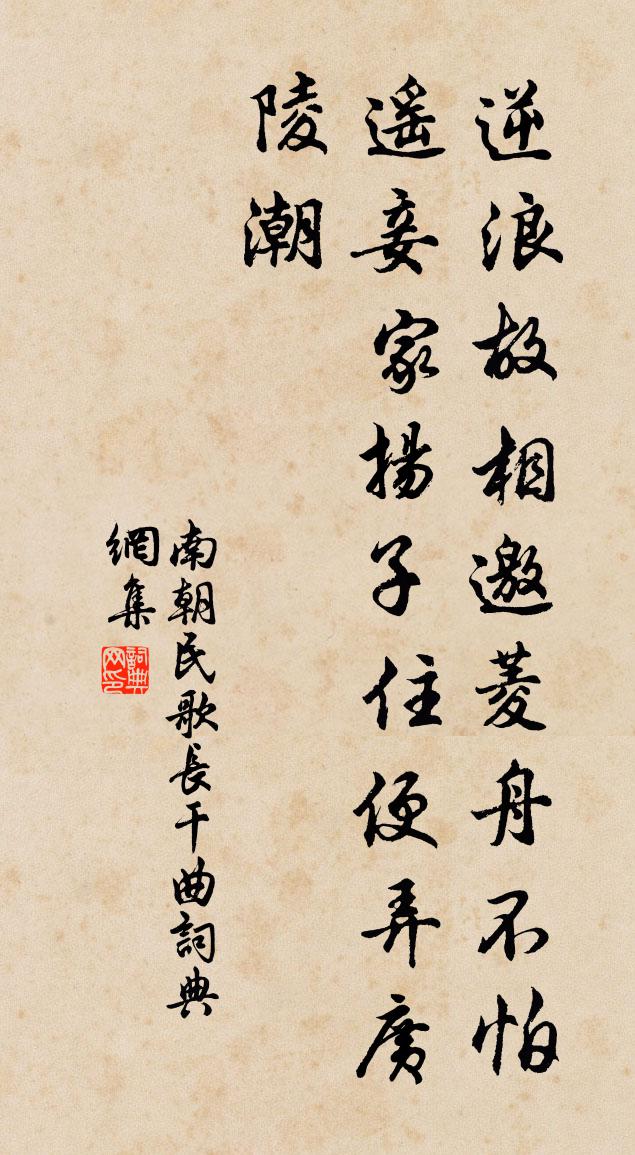 逆浪故相邀菱舟不怕
遥妾家揚子住便弄廣
陵潮
南朝民歌長干曲詞典
網集
詞典
网印